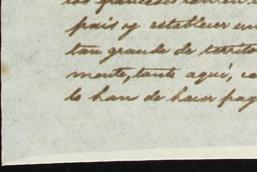 los franceses
pais y establecer un
tan grande de territo
mente, tanto aquí, co
lo han de hacer pag